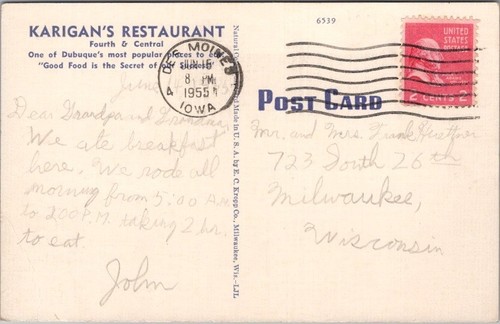 KARIGAN'S RESTAURANT
Fourth & Central
One of Dubuque's most popular places to eat
"Good Food is the Secret of Our Success"
June
Dear Grandpa and Grandma,
We ate breakfast
here. We rode all
morning from 5:00 A.M.
to 2:00 P.M. taking 2 hr.
to eat.
John
DES MOINES
JUN 15
8 PM
1955
IOWA
4
Natural
Made in U.S.A. by E. C. Kropp Co., Milwaukee, Wis.-LJL
6539
POST CARD
UNITED
STATES
POSTAGE
2 CENTS 2
Mr. and Mrs. Frank
723 South 26th
Milwaukee,
Wisconsin